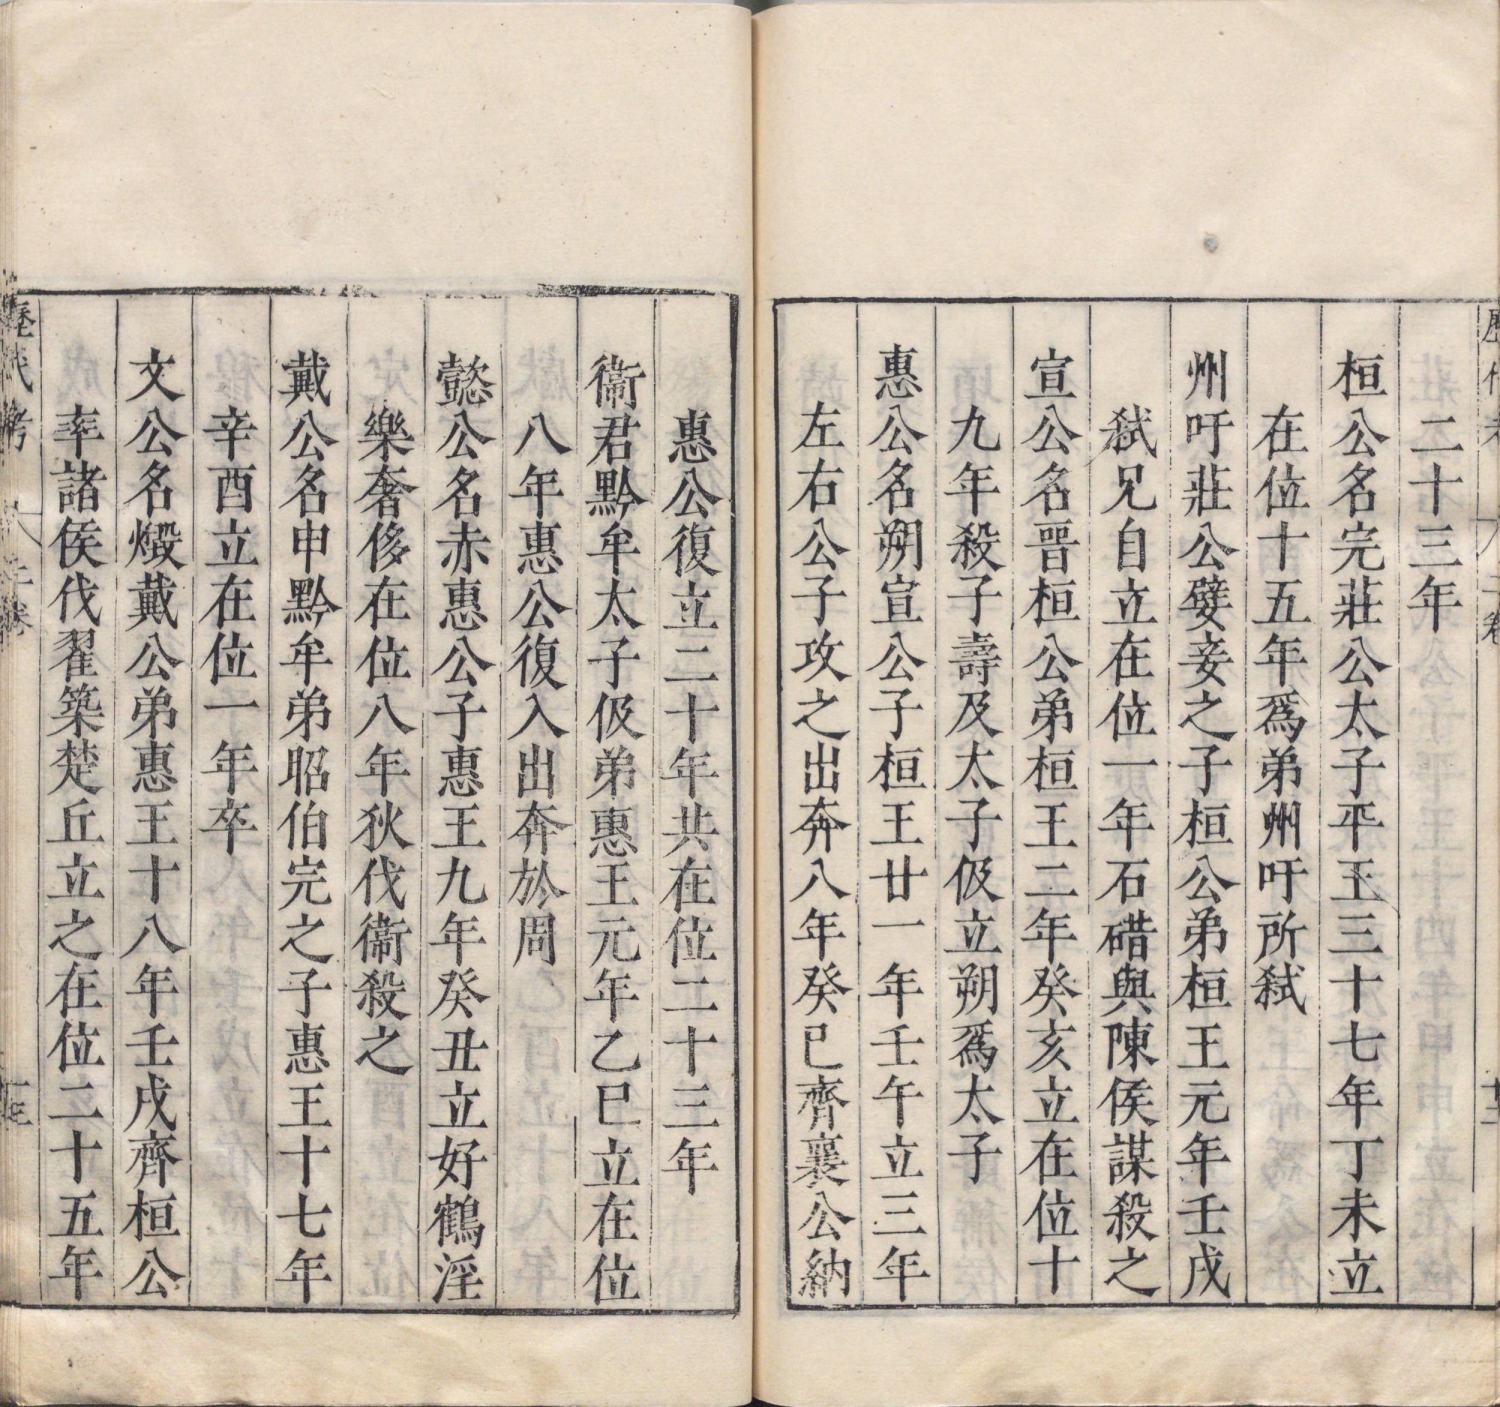 二十三年
桓公名完莊公太子平王三十七年丁未立
在位十五年爲弟州吁所弑
州吁莊公嬖妾之子桓公弟桓王元年壬戌
弑兄自立在位一年石碏與陳侯謀殺之
宣公名晉桓公弟桓王二年癸亥立在位十
九年殺子壽及太子伋立朔爲太子
惠公名朔宣公子桓王廿一年壬午立三年
左右公子攻之出奔八年癸巳齊襄公納
惠公復立二十年共在位二十三年
衞君黔牟太子伋弟惠王元年乙巳立在位
八年惠公復入出奔於周
懿公名赤惠公子惠王九年癸丑立好鶴淫
樂奢侈在位八年狄伐衞殺之
戴公名申黔牟弟昭伯完之子惠王十七年
辛酉立在位一年卒
文公名燬戴公弟惠王十八年壬戌齊桓公
率諸侯伐翟築楚丘立之在位二十五年